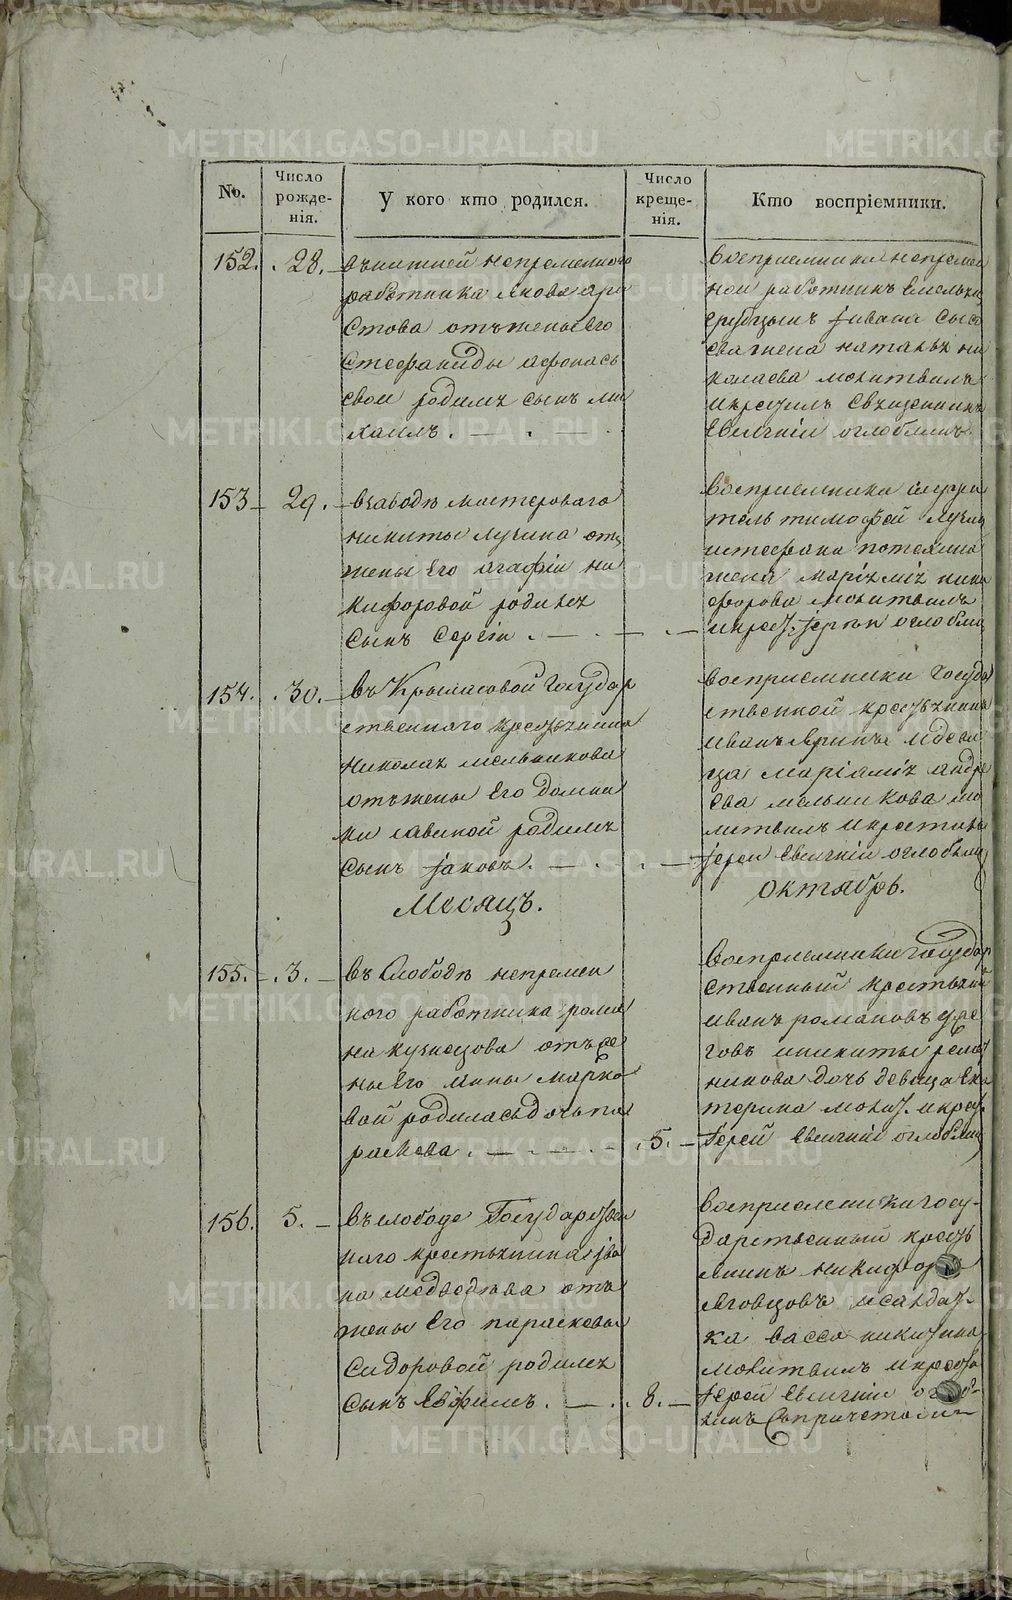 METRIKI.GASO-URAL.RU
No.
Число рожде-нія.
У кого кто родился.
Число креще-нія.
Кто воспріемники.
152.
28.
непременного
работника Якова
стова отъ жены его
Стефаниды афонась
евои родилъ сынъ ми
хаилъ.
Восприемники непремен
ной работникъ
николаева молитвилъ
и крестилъ священникъ
Евгеній оглоблинъ
153
29.
взаводѣ мастероваго
никиты лучина отъ
жены Его агафіи ни
кифоровой родился
сынъ Сергіи.
восприемники
тель тимофей лучин
и стефана
жена
форова молитвилъ
и крест. іереи оглоблин
154.
30.
въ Крыласовой государ
ственнаго крестьянина
николая мельникова
отъ жены Его домни
ки савиной родилъ
сынъ іаковъ.
восприемники госуда
ственной крестьянинъ
иванъ
ца маріамія андре
ева мельникова мо
литвилъ и крестилъ
іереи Евгеніи оглоблин
Месяцъ.
октябрь.
155.
3.
въ слободѣ непремен
ного работника рома
на кузнецова отъ же
ны Его анны марко
вой родилась дочь па
раскева.
5.
восприемники государ
ственный крестьянин
иванъ романовъ
говъ и никиты
никова дочь девица Ека
терина молит. и крест.
Іерей Евгеній оглоблин
156.
5.
въ слободе Государствен
наго крестьянина іва
на медведева отъ
жены Его парасковьи
Сидоровой родился
сынъ Ефимъ.
8.
восприемники госу-
дарственный кресть
янинъ никифоръ
Яговцовъ и салдат-
ка васса никитина
молитвилъ и крести
Іерей Евгеніи оглоб-
линъ съ причетом